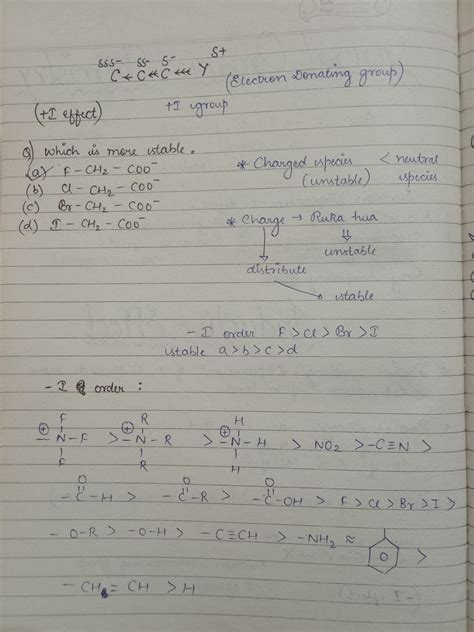 δδδ- δδ- δ- δ+
C ← C ← C ←←← Y (Electron Donating group)
(+I effect) +I group
Q) Which is more stable.
(a) F - CH₂ - COO⁻
(b) Cl - CH₂ - COO⁻
(c) Br - CH₂ - COO⁻
(d) I - CH₂ - COO⁻
* Charged species < neutral
(unstable) species
* Charge → Ruka hua
↓ ⇓
unstable
distribute
→ stable
- I order F > Cl > Br > I
stable a > b > c > d
- I order :
F R H
⊕ | ⊕ | ⊕ |
- N - F > - N - R > - N - H > NO₂ > - C ≡ N >
| | |
F R H
O O O
|| || ||
- C - H > - C - R > - C - OH > F > Cl > Br > I >
- O - R > - O - H > - C ≡ CH > - NH₂ ≈ >
- CH = CH > H